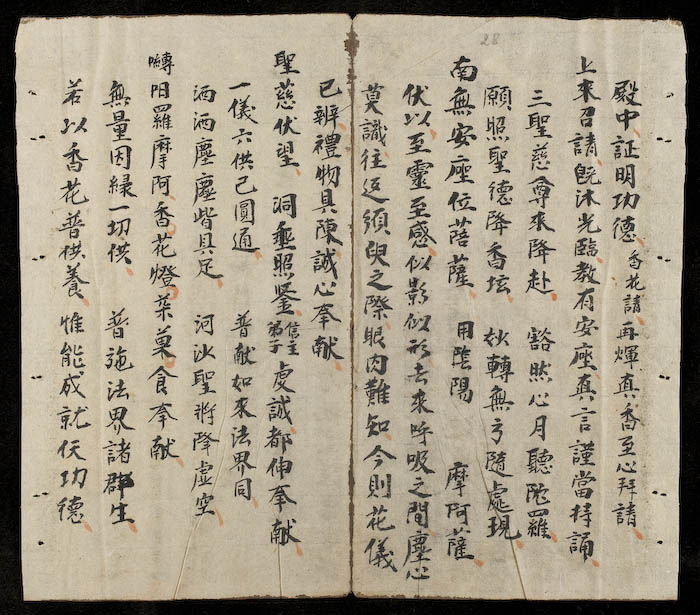 28
殿中証明功德 香花請 再煇真香至心拜請
上來召請既沐光臨教有安座真言謹當持誦
三聖慈尊來降赴 豁然心月聽陁羅
願照聖德降香坛 妙轉無亏隨處現
南無安座位菩薩 用隂陽 摩阿薩
伏以至靈至感似影似形去來呼吸之間塵心
莫識往返須臾之際眼肉難知今則花儀
已辦禮物具陳誠心奉献
聖慈伏望 洞垂照鉴 信主弟子 虔誠都伸奉献
一儀六供已圓通 普献如來法界同
洒洒塵塵皆具足 河沙聖將降虛空
囀日羅摩阿香花燈菜菓食奉献
無量因緣一切供 普施法界諸群生
若以香花普供養 惟能成就仸功德